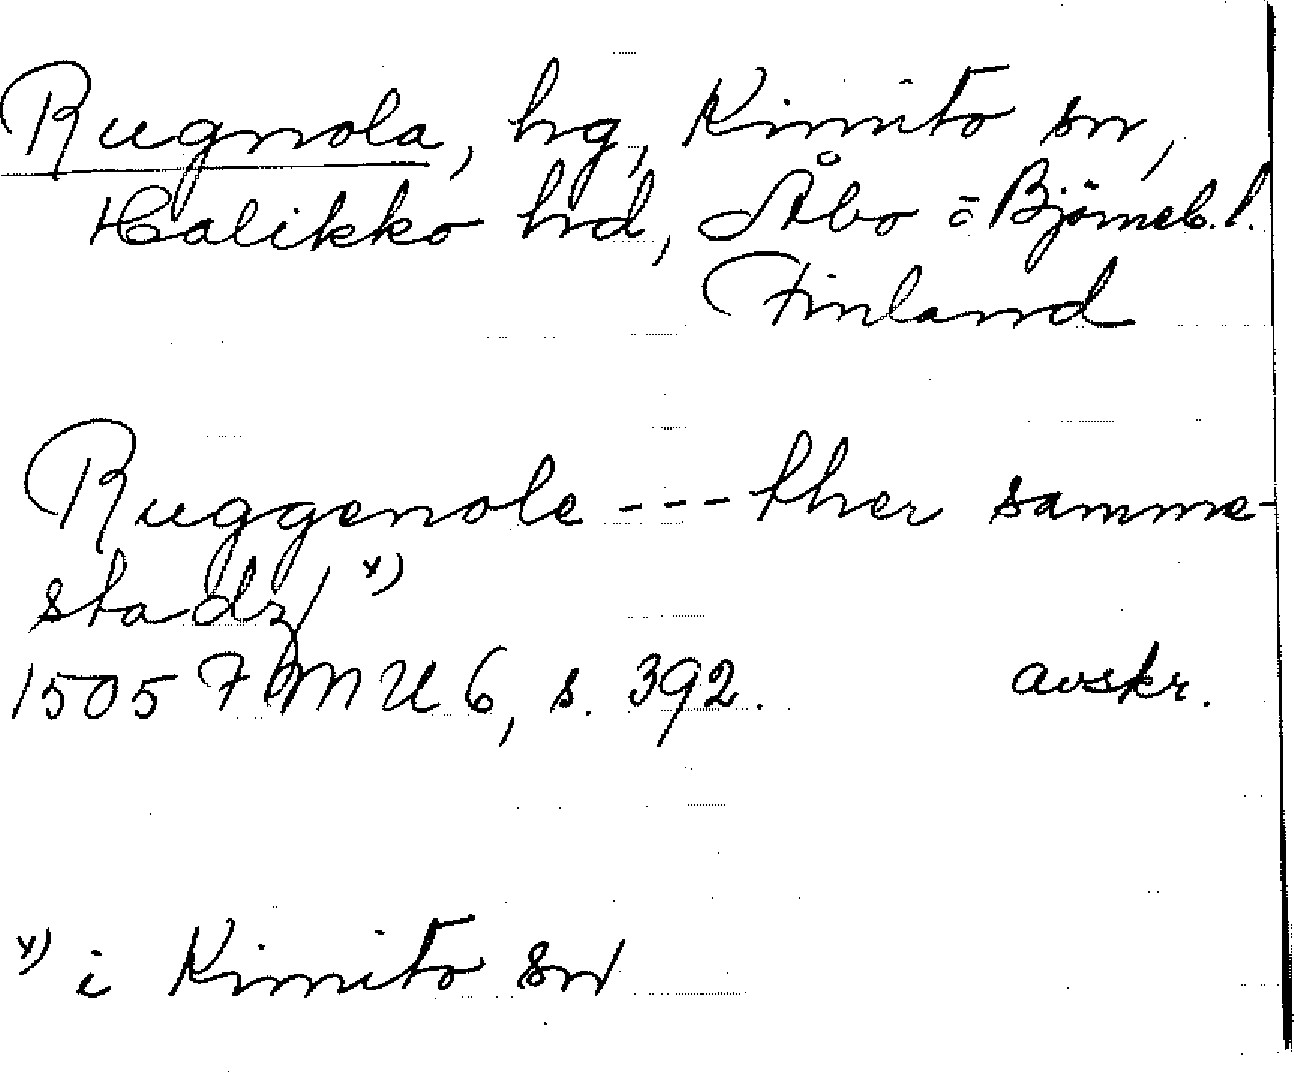 Rugnola, hg, Kimito sn,
Halikko hd, Åbo o Björneb. l.
Finland
Ruggenole --- ther samme-
stadz/ x)
1505 FMU 6, s. 392. avskr.
x) i Kimito sn/